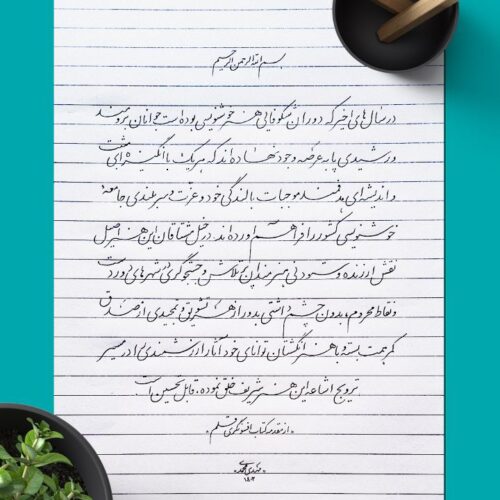 بسم الله الرحمن الرحیم
در سال‌های اخیر که دوران شکوفایی هنر خوشنویسی بوده است جوانان برومند
و رشیدی پا به عرصه وجود نهاده‌اند که هر یک با انگیزه‌ای مثبت
و اندیشه‌ای هدفمند موجبات بالندگی خود و عزت و سربلندی جامعه
خوشنویسی کشور را فراهم آورده‌اند. در خیل مشتاقان این هنر اصیل
نقش ارزنده و ستودنی هنرمندان پرتلاش و جستجوگری در شهرهای دوردست
و نقاط محروم، بدون چشم‌داشتی به دور از هر تشویق و تمجیدی از صدق
کمر همت بسته و با هنر انگشتان توانای خود آثار ارزشمندی را در مسیر
ترویج اشاعه این هنر شریف خلق نموده. قابل تحسین است
از مقدمه کتاب افسونگری قلم
مهدی محمدی